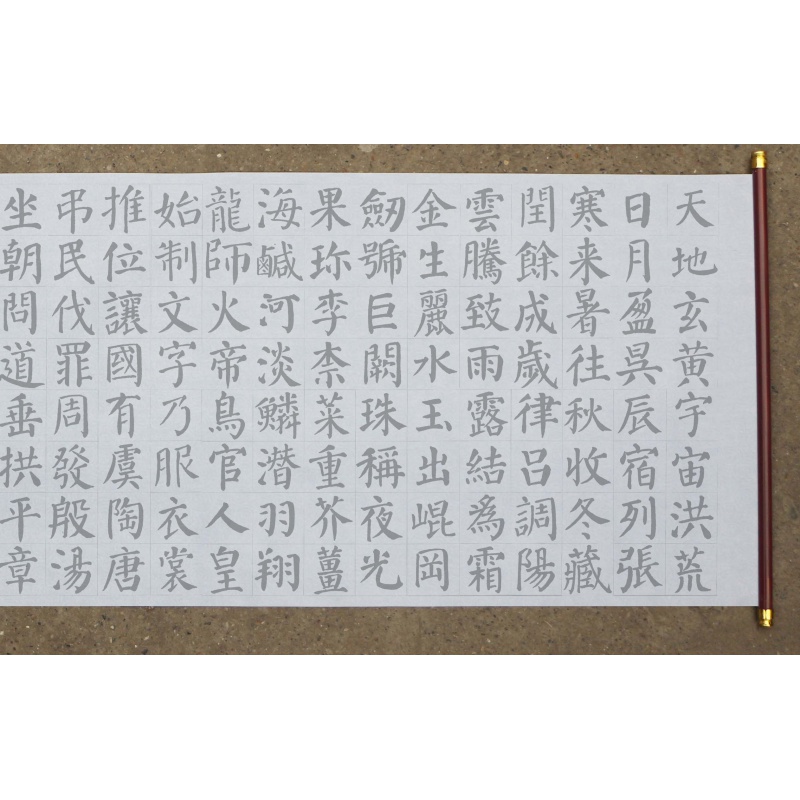 天地玄黄宇宙洪荒
日月盈昃辰宿列張
寒来暑往秋收冬藏
閏餘成歲律吕調陽
雲騰致雨露結為霜
金生麗水玉出崐岡
劒號巨闕珠稱夜光
果珎李柰菜重芥薑
海鹹河淡鱗潛羽翔
龍師火帝鳥官人皇
始制文字乃服衣裳
推位讓國有虞陶唐
弔民伐罪周發殷湯
坐朝問道垂拱平章